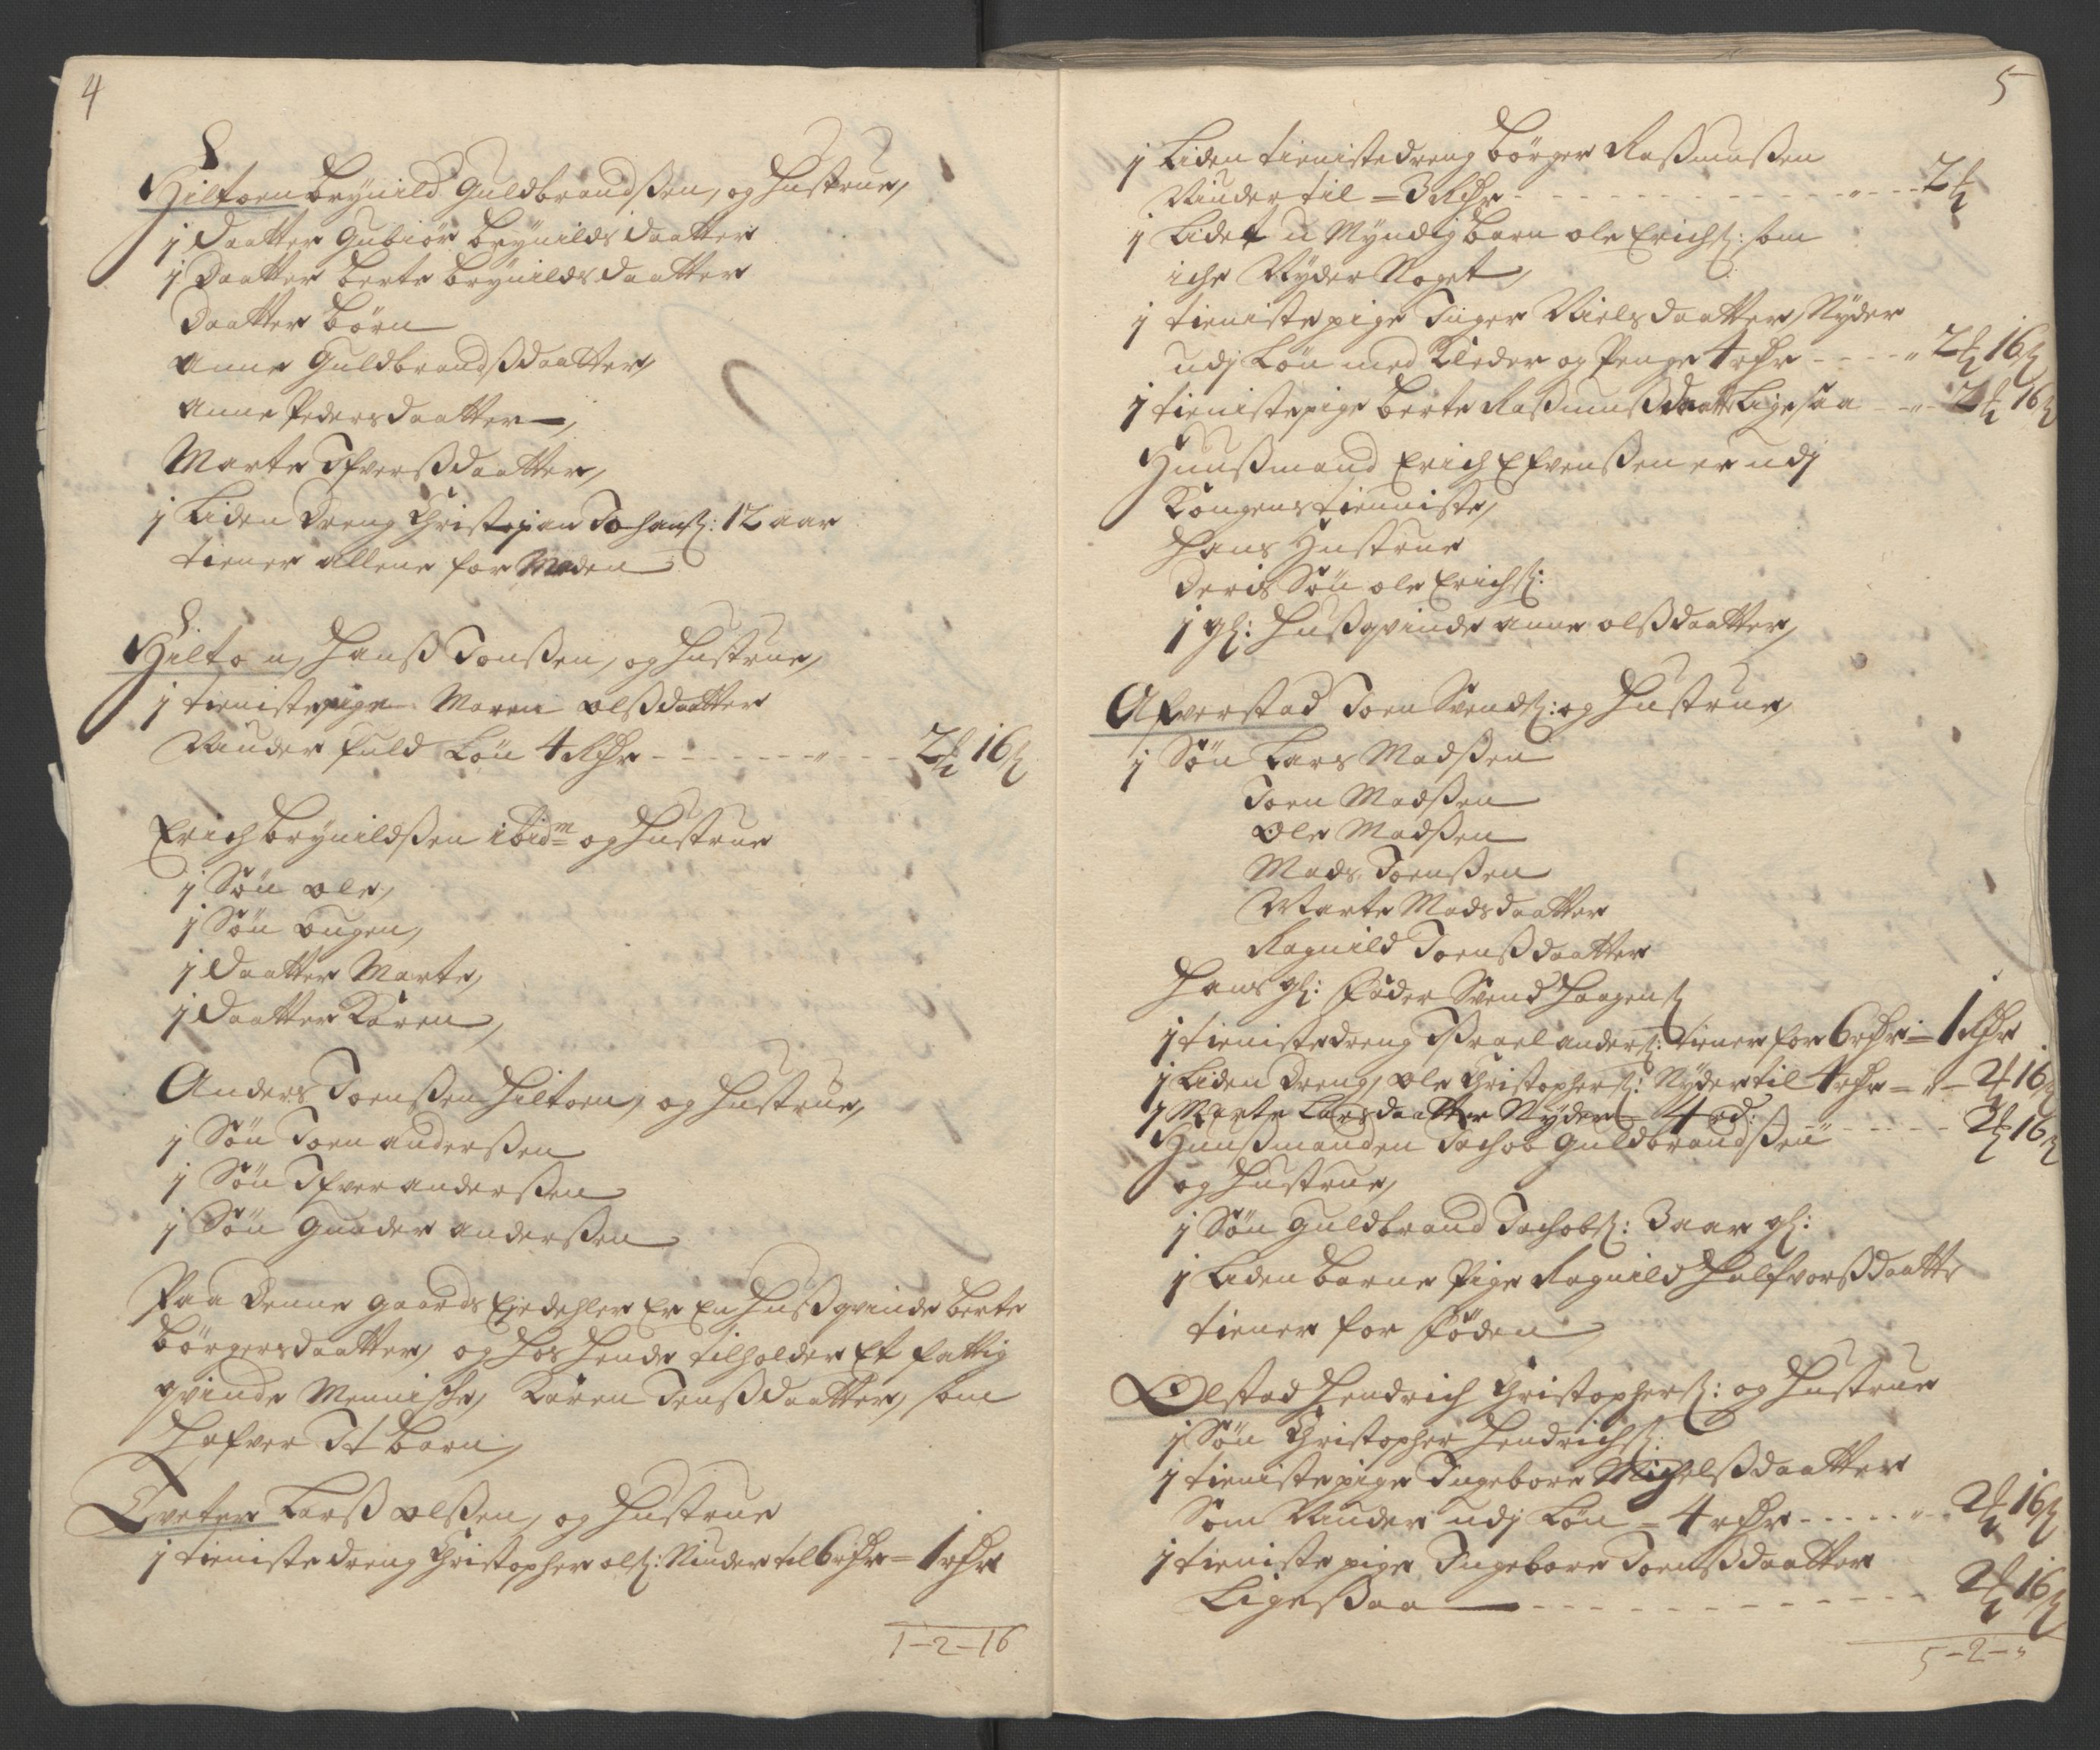 4
Hiltoen brynild Guldbrandsßen, og Hustrue,
1 Daatter Gubiør brynilds daatter
1 Daatter berte brynilds daatter
Daatter børn
Anne Guldbrandsßdaatter,
Anne Peders daatter,
Marte Ifversßdaatter,
1 Liden Dreng Christopian Johanß: 12 aar
tiener allene for Maden
Hilton, Hanß Jonßen, og Hustrue,
1 tieniste pige Maren olßdaatter
Niuder fuld Løn 4 Rdr - - - - - „ - - - 2 ℔ 16 ß
Erich brynildsßen ibidm og Hustrue
1 Søn ole,
1 Søn Augen,
1 Daatter Marte,
1 Daatter Karen,
Anders Joenßen Hiltoen, og Hustrue,
1 Søn Joen anderßen
1 Søn Ifver anderßen
1 Søn Gunder anderßen
Paa Denne gaards Eiedehler Er En Hußqvinde berte
børgersdaatter, og hos hende tilholder Et fattig
qvinde Menniske, Karen Jensßdaatter, som
hafver It barn,
Tveter Larß olßen, og Hustrue
1 tieniste dreng Christopher olß: Niuder til 6 rdr = 1 rdr
1-2-16
5
1 Liden tienistedreng børger Raßmußen
Niuder til = 3 Rdr - - - - - - - - „ - - 2 ℔
1 Lidet u Myndig barn ole Erichß: som
iche Nyder Noget,
1 tieniste pige Inger Nielsdaatter, Nyder
udj Løn med Kleder og Penge 4 rdr - - - - „ 2 ℔ 16 ß
1 tieniste pige berte Raßmußdaatt: Ligesaa - „ - 2 ℔ 16 ß
Huußmand Erich Efvenßen er udj
Kongens tienniste,
hans Hustrue
Deris Søn ole Erichß:
1 gl: Hußqvinde anne olßdaatter,
Afverstad Joen Svendß: og Hustrue,
1 Søn Lars Madßen
Joen Madßen
Ole Madßen
Mads Joenßen
Marte Madsdaatter
Ragnild Joenßdaatter
Hans gl: Fader Svend Haagenß
1 tienistedreng Ißrael anderß: tiener for 6 rdr = 1 Rdr
1 Liden Dreng, ole Christopherß: Nyder til 4 rdr = „ - 2 ℔ 16 ß
1 Marte Larsdaatter Nyder 4 rd:
Huußmanden Jachob Guldbrandsßen - - - - - 2 ℔ 16 ß
og Hustrue,
1 Søn Guldbrand Jachobß: 3 aar gl:
1 Liden barne Pige Ragnild Halfvorßdaatt:
tiener for Føden
Ølstad Hendrich Christopherß: og Hustrue
1 Søn Christopher Hendrichß:
1 tieniste pige Ingebore Michelßdaatter
Som Niuder udj Løn - 4 rdr - - - - - „ - 2 ℔ 16 ß
1 tieniste pige Ingebore Joensßdaatter
Ligeßaa - - - - - - - - - 2 ℔ 16 ß
5-2-„